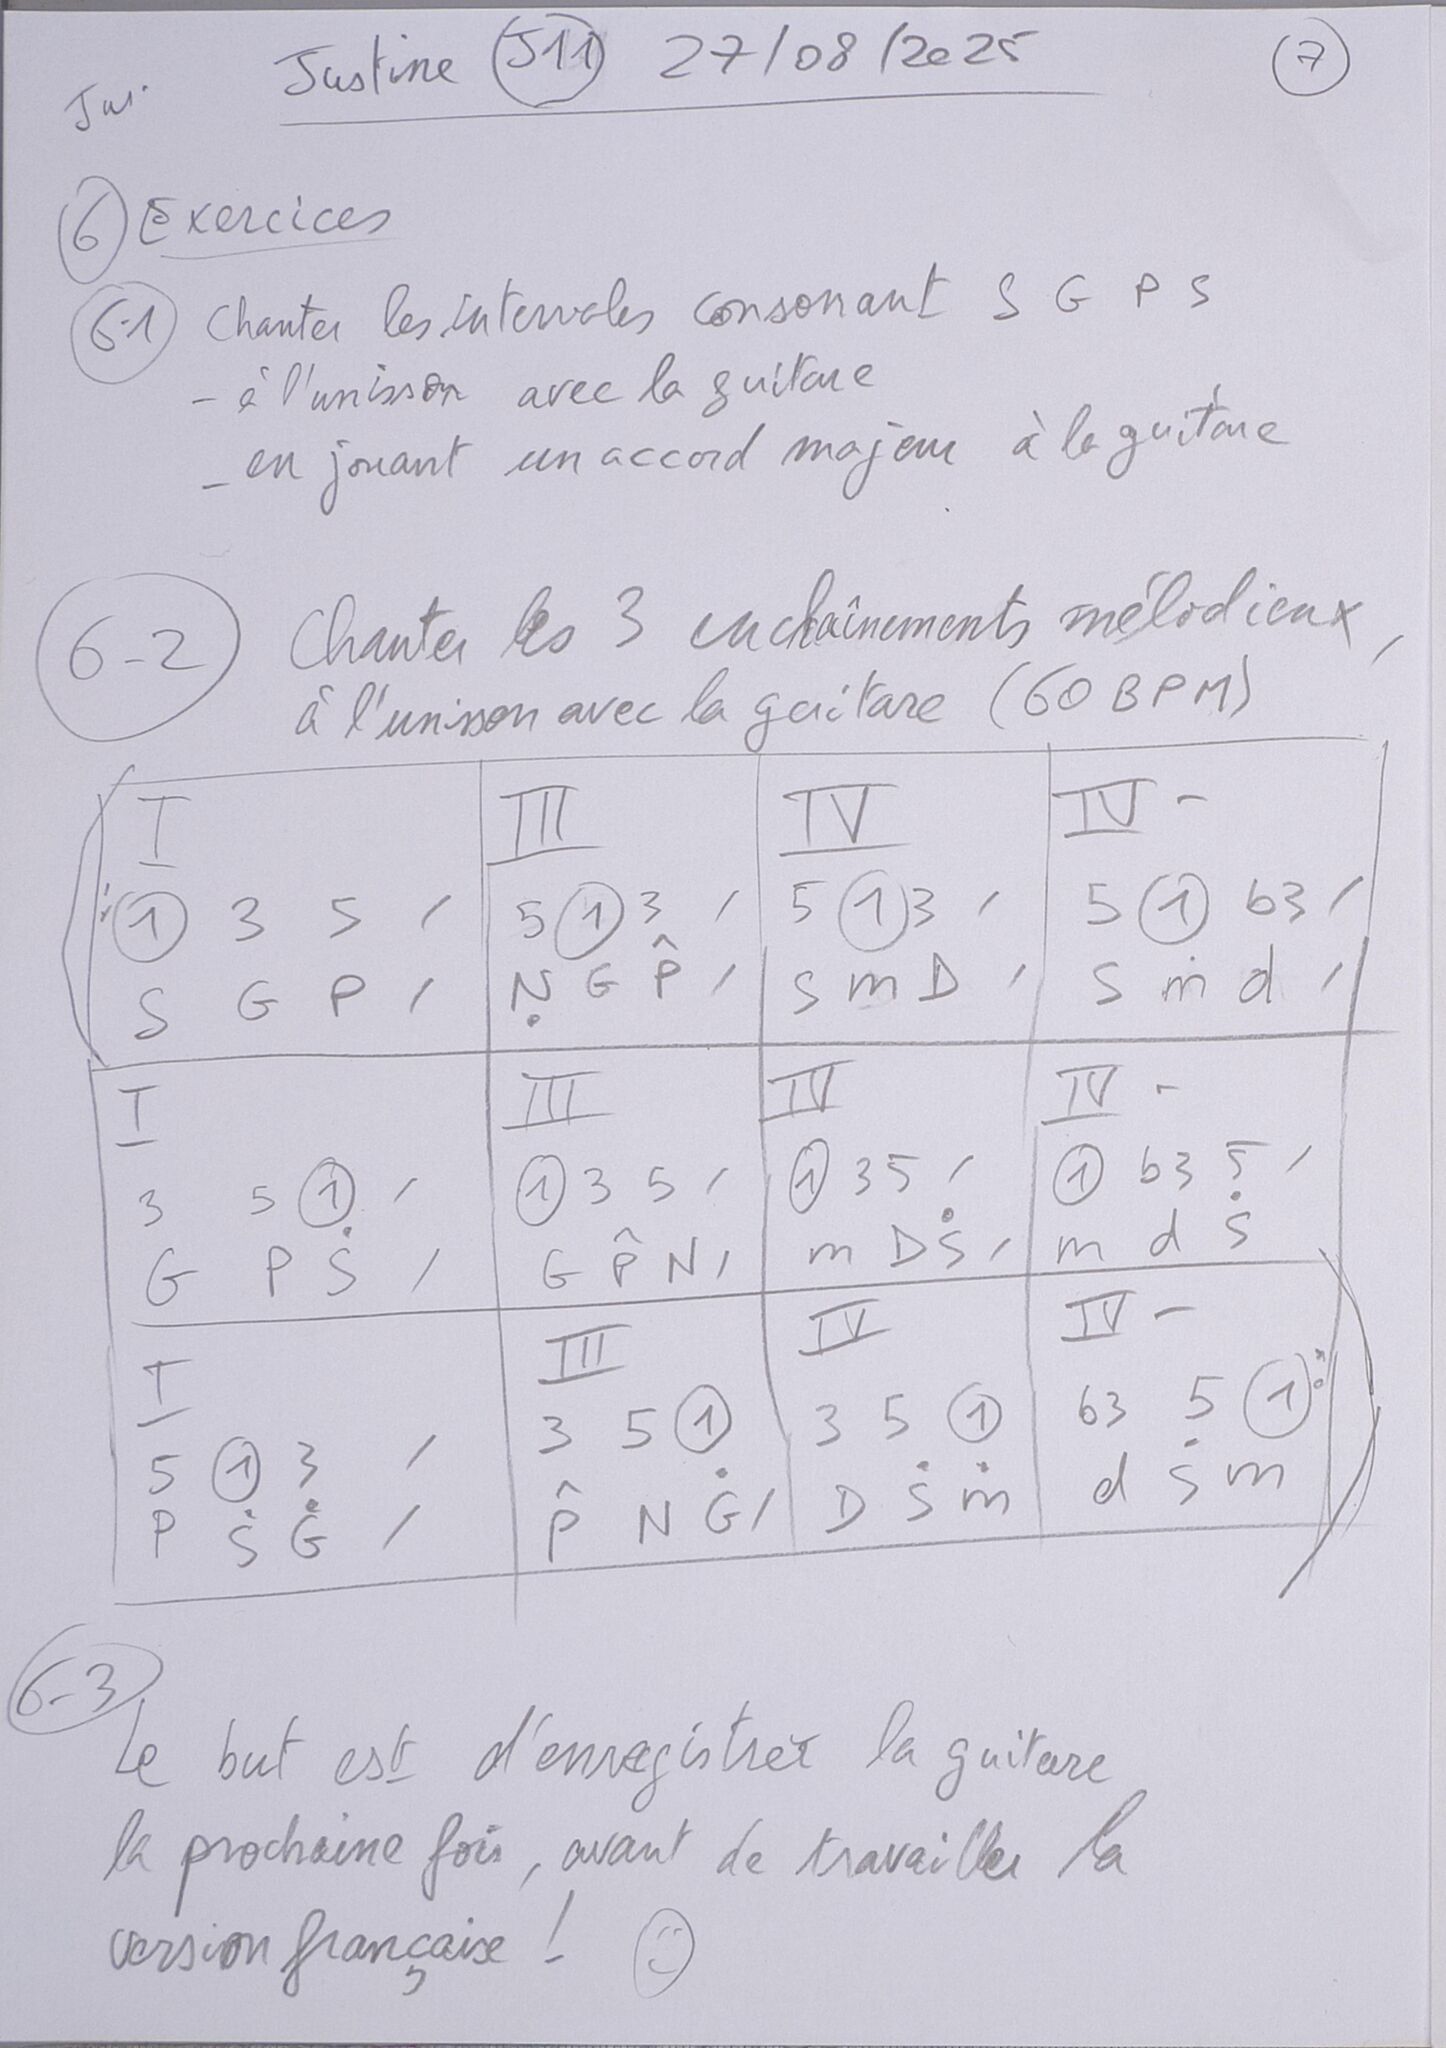 Jus. Justine J11 27/08/2025 7
6 Exercices
6-1 Chanter les intervales consonant S G P S
- à l'unisson avec la guitare
- en jouant un accord majeur à la guitare
6-2 Chanter les 3 enchaînements mélodieux,
à l'unisson avec la guitare (60 BPM)
I III IV IV -
: 1 3 5 / 5 1 3 / 5 1 3 / 5 1 b3 /
S G P / Ṇ G P̂ / S m D / S ṁ d /
I III IV IV -
3 5 1 / 1 3 5 / 1 3 5 / 1 b3 5 /
G P Ṡ / G P̂ N / m D Ṡ / m d Ṡ
I III IV IV -
5 1 3 / 3 5 1 3 5 1 b3 5 1 :
P Ṡ Ġ / P̂ N Ġ / D Ṡ ṁ d Ṡ m
6-3
Le but est d'enregistrer la guitare
la prochaine fois, avant de travailler la
version française ! ☺